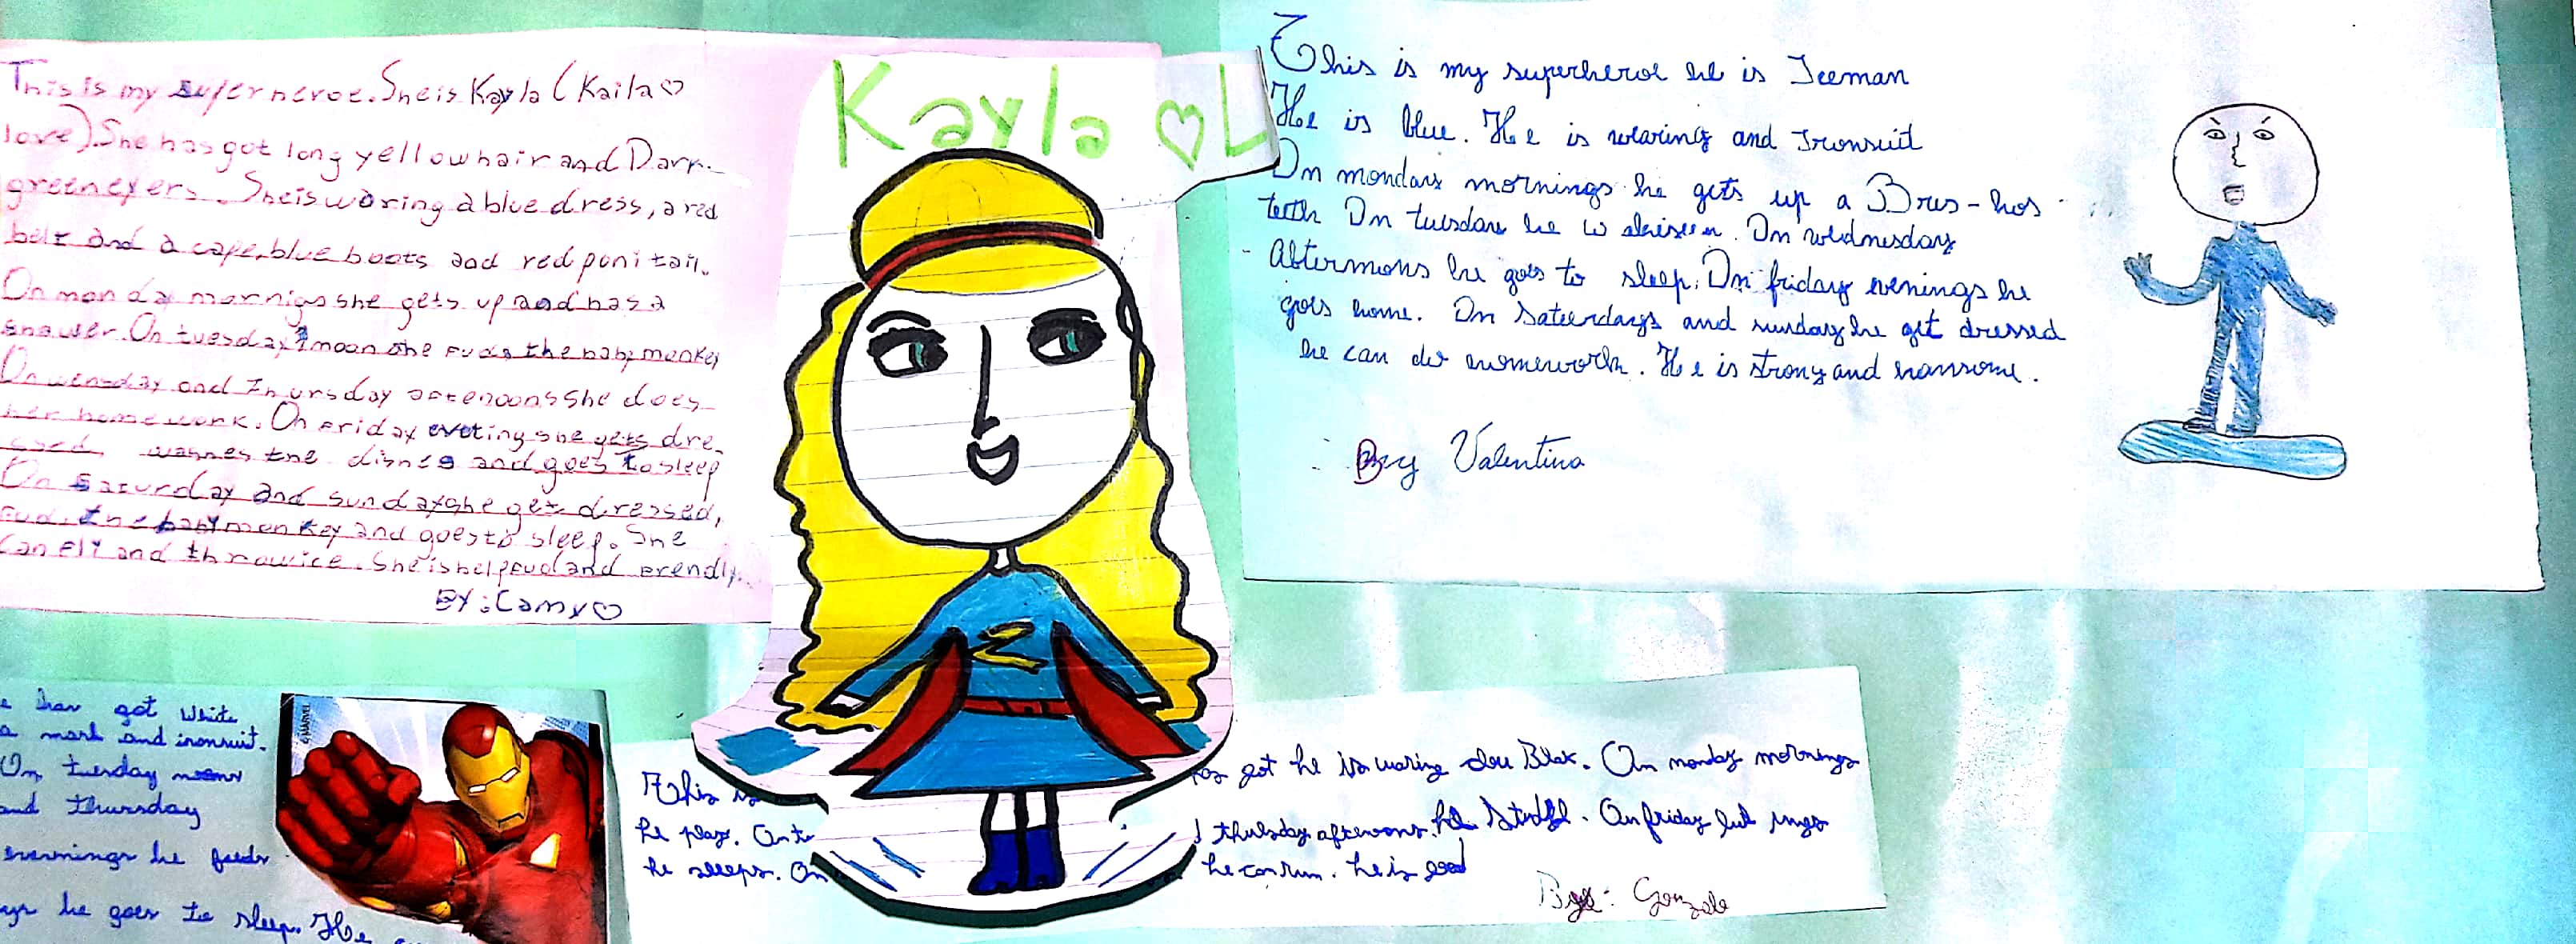 This is my superheroe. She is Kayla (Kaila♡
love). She has got long yellow hair and Dark
green eyers. She is waring a blue dress, a red
belt and a cape, blue boots and red ponitail.
On monday mornigs she gets up and has a
shawer. On tuesday moon she fuds the baby monkey
On wensday and Thursday afternoons she does
her homework. On Friday eveting she gets dre-
ssed, washes the dishes and goes to sleep
On Saturday and sundays she get dressed,
fud. the baby monkey and goes to sleep. She
can fli and throw ice. She is helpfud and frendly.
BY: Camy♡
Kayla ♡ L
This is my superheroe he is Iceman
He is blue. He is wearing and Ironsuit
On mondays mornings he gets up a Brus-hos
teeth On tuesday he On wednesday
Aftermons he goes to sleep. On friday evenings he
goes home. On Saterdays and sunday he get dressed
he can do homework. He is strong and hansome.
By Valentino
e has got white
a mask and ironsuit.
On tuesday
and thursday
evernings he feeds
ays he goes to sleep. He
©MARVEL
This is
has got he is waring Blak. On monday mornings
he play. On tu
thursday afternons he On friday
he sleeps. On
he can run. he is good
By: Gonzalo